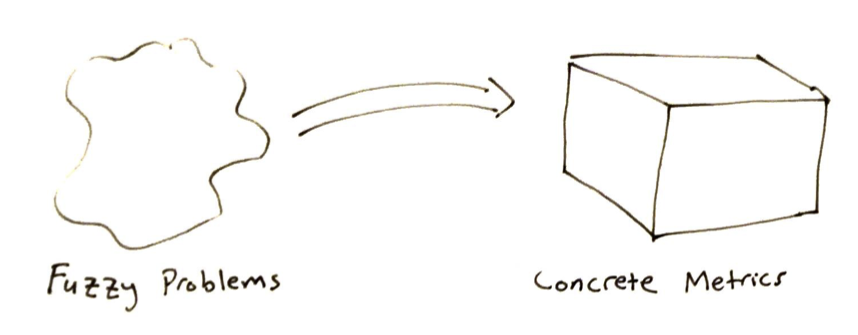 Fuzzy Problems
Concrete Metrics